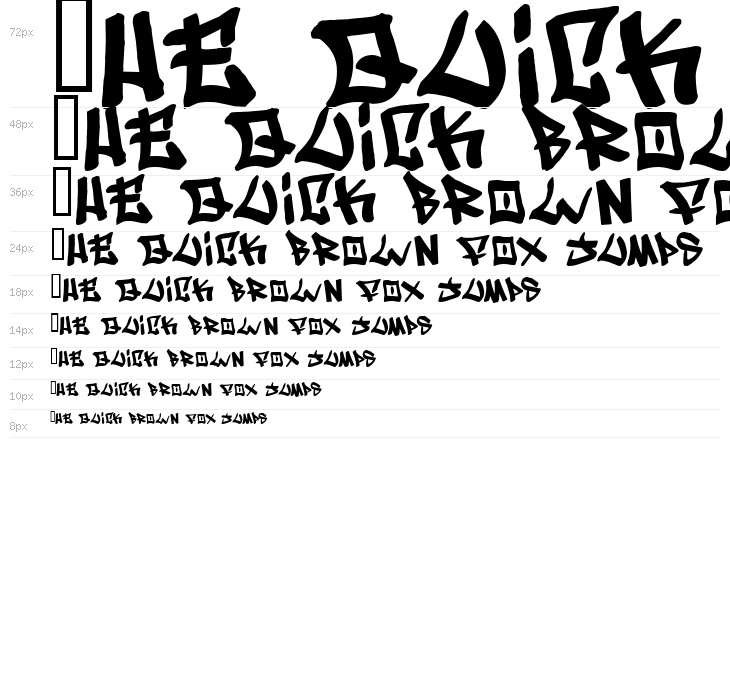 72px ▯HE QUiCK
48px ▯HE QUiCK BROW
36px ▯HE QUiCK BROWN FO
24px ▯HE QUiCK BROWN FOX JUMPS
18px ▯HE QUiCK BROWN FOX JUMPS
14px ▯HE QUiCK BROWN FOX JUMPS
12px ▯HE QUiCK BROWN FOX JUMPS
10px ▯HE QUiCK BROWN FOX JUMPS
8px ▯HE QUiCK BROWN FOX JUMPS